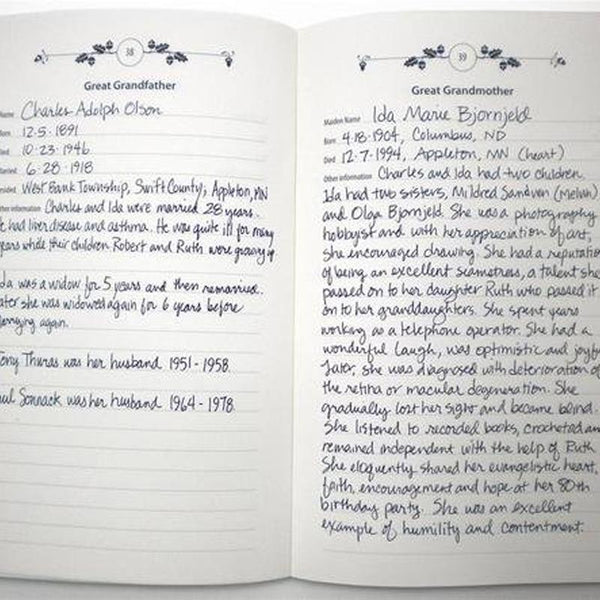 38
Great Grandfather
Name Charles Adolph Olson
Born 12-5-1891
Died 10-23-1946
Married 6-28-1918
Resided West Bank Township, Swift County; Appleton, MN
Other information Charles and Ida were married 28 years.
He had liver disease and asthma. He was quite ill for many
years while their children Robert and Ruth were growing up
Ida was a widow for 5 years and then remarried.
Later she was widowed again for 6 years before
marrying again.
Tony Thuras was her husband 1951-1958.
Paul Sonnack was her husband 1964-1978.
39
Great Grandmother
Maiden Name Ida Marie Bjornjeld
Born 4-18-1904, Columbus, ND
Died 12-7-1994, Appleton, MN (heart)
Other information Charles and Ida had two children.
Ida had two sisters, Mildred Sandven (Melvin)
and Olga Bjornjeld. She was a photography
hobbyist and with her appreciation of art,
she encouraged drawing. She had a reputation
of being an excellent seamstress, a talent she
passed on to her daughter Ruth who passed it
on to her granddaughters. She spent years
working as a telephone operator. She had a
wonderful laugh, was optimistic and joyful
Later, she was diagnosed with deterioration of
the retina or macular degeneration. She
gradually lost her sight and became blind.
She listened to recorded books, crocheted and
remained independent with the help of Ruth
She eloquently shared her evangelistic heart,
faith, encouragement and hope at her 80th
birthday party. She was an excellent
example of humility and contentment.